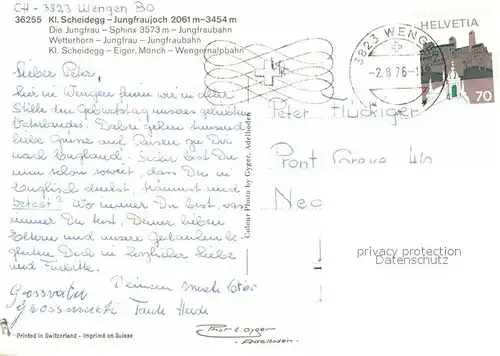 CH - 3823 Wengen BO
36255 Kl. Scheidegg - Jungfraujoch 2061 m - 3454 m
Die Jungfrau - Sphinx 3573 m - Jungfraubahn
Wetterhorn - Jungfrau - Jungfraubahn
Kl. Scheidegg - Eiger, Mönch - Wengernalpbahn
HELVETIA
70
3823 WENGEN
-2.8.76-1
Lieber Peter,
hier in Wengen feiern wir in aller
Stille den Geburtstag unseres geliebten
Vaterlandes. Dabei gehen tausend
liebe Grüsse auf Reisen zu Dir
nach England. Sicher bist Du
nun schon soweit, dass Du in
Englisch denkst, träumst und
betest? Wo immer Du bist, was
immer Du tust, Deine lieben
Eltern und unsere Gedanken be-
gleiten Dich in herzlicher Liebe
und Fürbitte.
Deinem
Grossvater
Grossmutti Tante Heidi
Peter Flückiger
Pont
Neg
Colour Photo by Gyger, Adelboden
privacy protection
Datenschutz
Printed in Switzerland - Imprimé en Suisse
Phot. E. Gyger
- Adelboden -